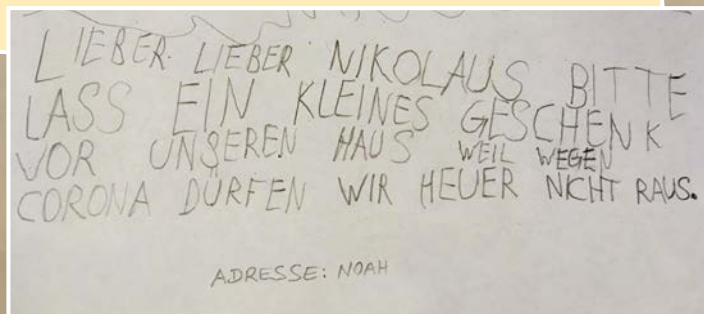 LIEBER. LIEBER NIKOLAUS BITTE
LASS EIN KLEINES GESCHENK
VOR UNSEREN HAUS WEIL WEGEN
CORONA DÜRFEN WIR HEUER NICHT RAUS.
ADRESSE: NOAH